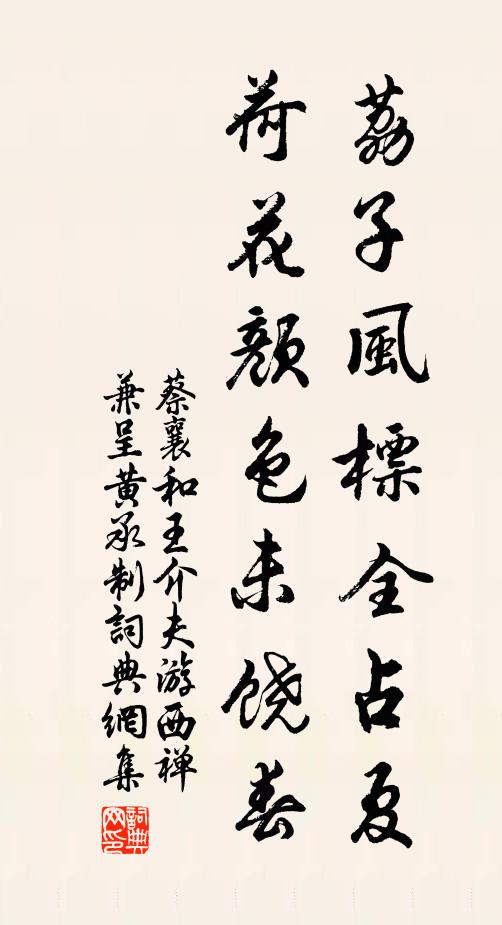 荔子風標全占夏
荷花顏色未饒春
蔡襄和王介夫游西禅
兼呈黄承制詞典網集
詞典
网印